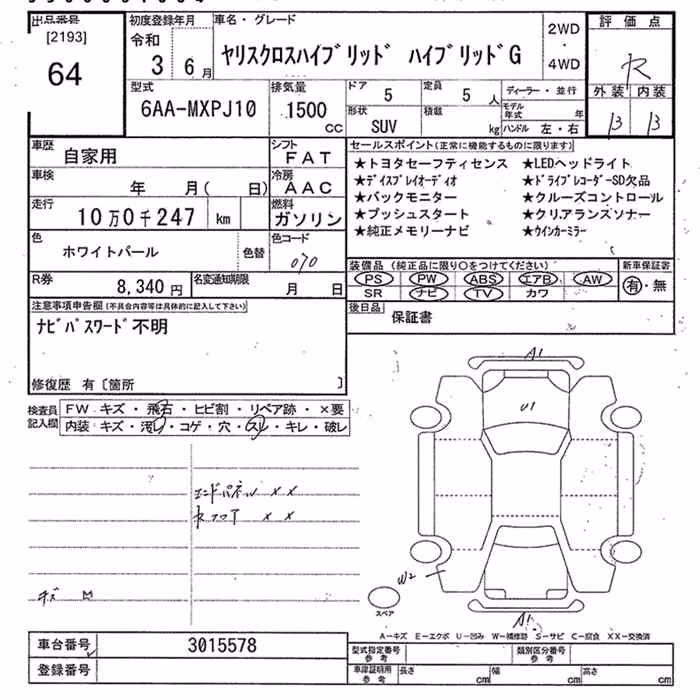 出品番号 初度登録年月 車名・グレード 評価点
[2193] 令和 2WD
64 3 6月 ヤリスクロスハイブリッド ハイブリッドG ・
4WD R
型式 排気量 ドア 定員 ディーラー・並行 外装 内装
6AA-MXPJ10 1500 5 5 人 モデル年式 年 B B
cc 形状 SUV 積載 kg ハンドル 左・右
車歴 自家用 シフト FAT セールスポイント(正常に機能するものに限ります)
車検 年 月( 日) 冷房 AAC ★トヨタセーフティセンス ★LEDヘッドライト
走行 10万0千247 km 燃料 ガソリン ★ディスプレイオーディオ ★ドライブレコーダーSD欠品
★バックモニター ★クルーズコントロール
★プッシュスタート ★クリアランスソナー
★純正メモリーナビ ★ウインカーミラー
色 ホワイトパール 色替 色コード 070
装備品(純正品に限り○をつけてください) 新車保証書
R券 8,340円 名変通知期限 月 日 PS PW ABS エアB AW 有・無
SR ナビ TV カワ
注意事項申告欄(不具合内容等は具体的に記入して下さい) 後日品 保証書
ナビパスワード不明
修復歴 有〔箇所 〕
検査員記入欄 FW キズ・飛石・ヒビ割・リペア跡・×要
内装 キズ・汚レ・コゲ・穴・スレ・キレ・破レ
A1
U1
エンドパネル ××
カフロア ××
W2
スペア
A1
A-キズ E-エクボ U-凹み W-補修跡 S-サビ C-腐食 XX-交換済
車台番号 3015578 型式指定番号 参考 類別区分番号 参考
登録番号 車庫証明用 参考 長さ cm 幅 cm 高さ cm